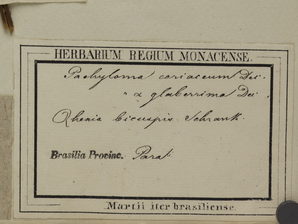 HERBARIUM REGIUM MONACENSE.
Pachyloma coriaceum DC.
" α glaberrima DC.
Rhexia bicuspis Schrank.
Brasilia Provinc. Pará
Martii iter brasiliense.